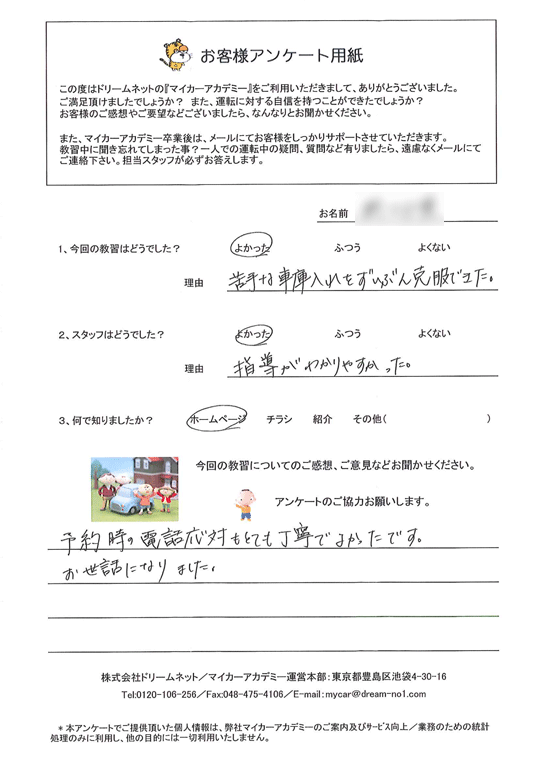 お客様アンケート用紙
この度はドリームネットの『マイカーアカデミー』をご利用いただきまして、ありがとうございました。
ご満足頂けましたでしょうか？ また、運転に対する自信を持つことができたでしょうか？
お客様のご感想やご要望などございましたら、なんなりとお聞かせください。
また、マイカーアカデミー卒業後は、メールにてお客様をしっかりサポートさせていただきます。
教習中に聞き忘れてしまった事？一人での運転中の疑問、質問など有りましたら、遠慮なくメールにて
ご連絡下さい。担当スタッフが必ずお答えします。
お名前
1、今回の教習はどうでした？ よかった ふつう よくない
理由 苦手な車庫入れをずいぶん克服できた。
2、スタッフはどうでした？ よかった ふつう よくない
理由 指導がわかりやすかった。
3、何で知りましたか？ ホームページ チラシ 紹介 その他( )
今回の教習についてのご感想、ご意見などお聞かせください。
アンケートのご協力お願いします。
予約時の電話応対もとても丁寧でよかったです。
お世話になりました。
株式会社ドリームネット／マイカーアカデミー運営本部：東京都豊島区池袋4-30-16
Tel:0120-106-256／Fax:048-475-4106／E-mail:mycar@dream-no1.com
＊本アンケートでご提供頂いた個人情報は、弊社マイカーアカデミーのご案内及びサービス向上／業務のための統計
処理のみに利用し、他の目的には一切利用いたしません。